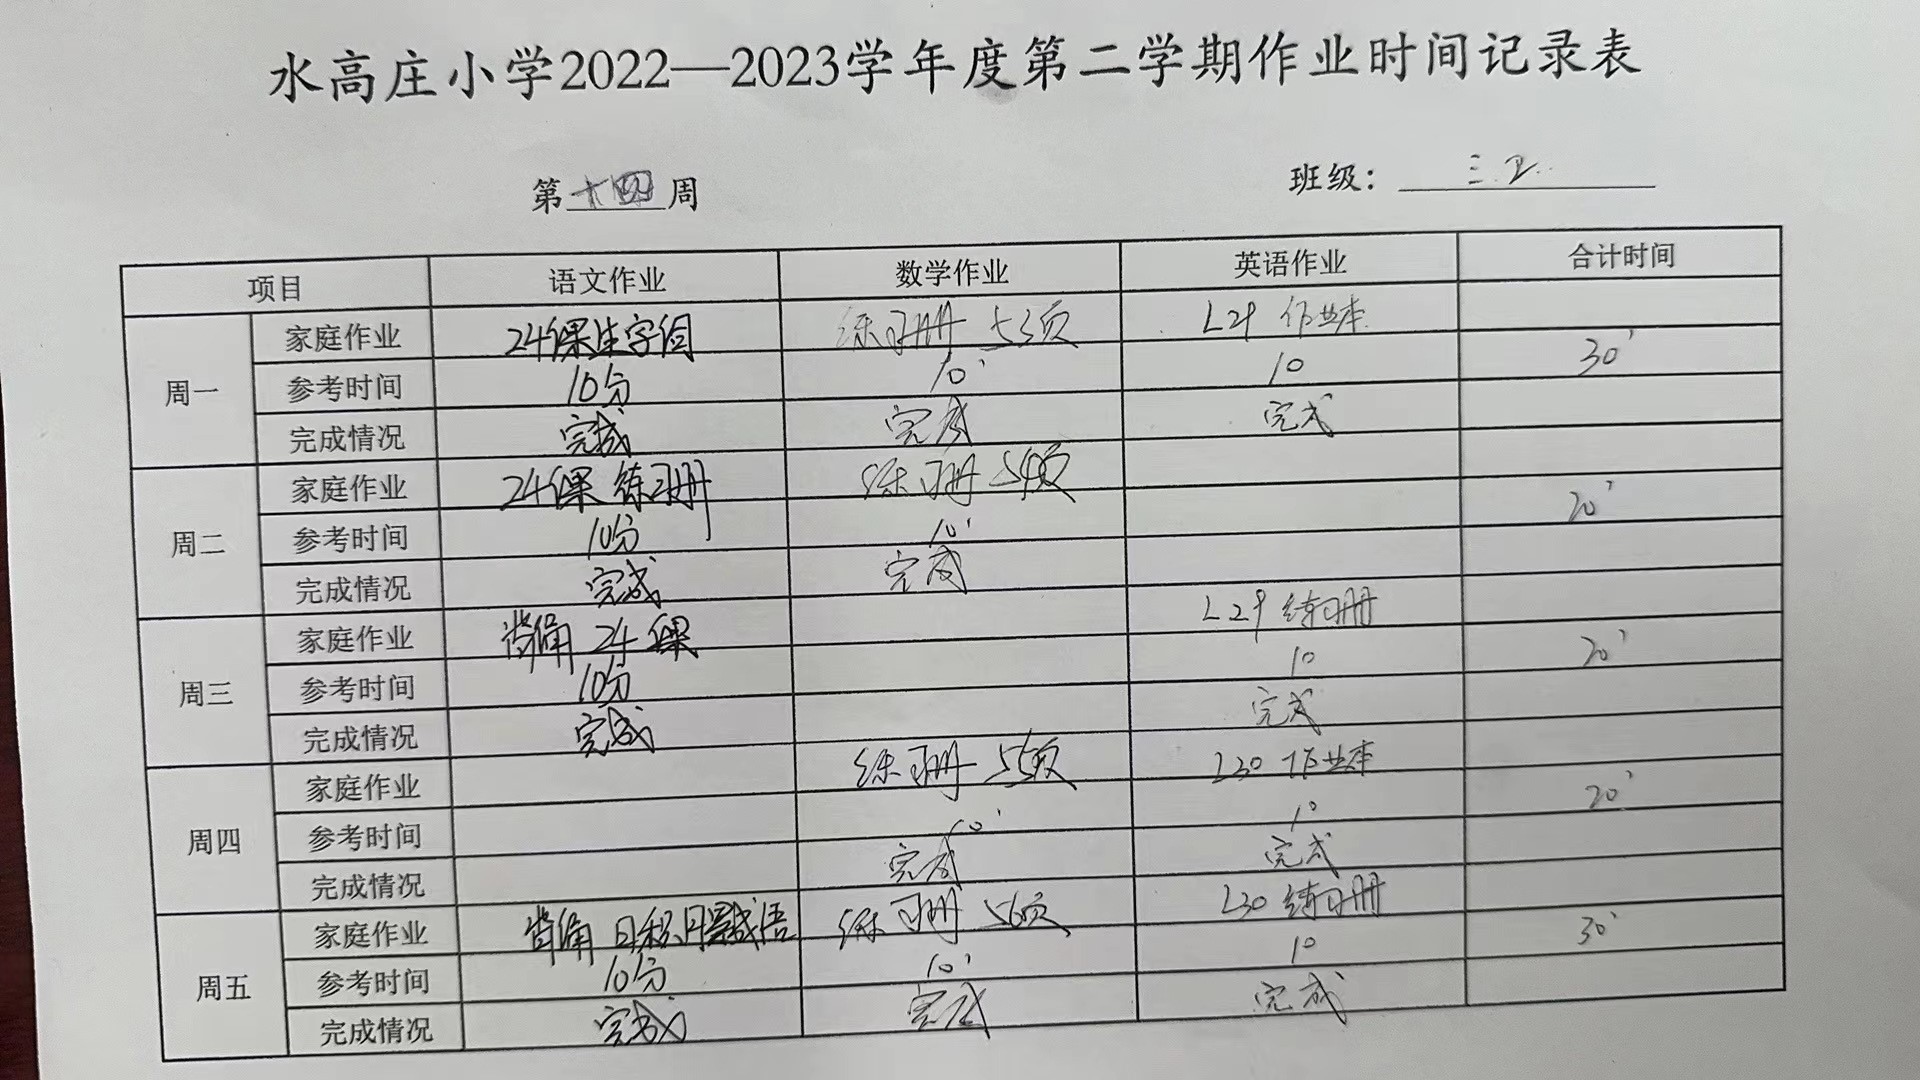 水高庄小学2022—2023学年度第二学期作业时间记录表
第十四周 班级：三.2.
项目 语文作业 数学作业 英语作业 合计时间
周一 家庭作业 24课生字词 练习册 53页 L29 作业本
参考时间 10分 10' 10 30'
完成情况 完成 完成 完成
周二 家庭作业 24课 练习册 练习册 54页
参考时间 10分 10' 20'
完成情况 完成 完成
周三 家庭作业 背诵 24课 L29 练习册
参考时间 10分 10 20'
完成情况 完成 完成
周四 家庭作业 练习册 55页 L30 作业本
参考时间 10' 10 20'
完成情况 完成 完成
周五 家庭作业 背诵 日积月累成语 练习册 56页 L30 练习册
参考时间 10分 10' 10 30'
完成情况 完成 完成 完成